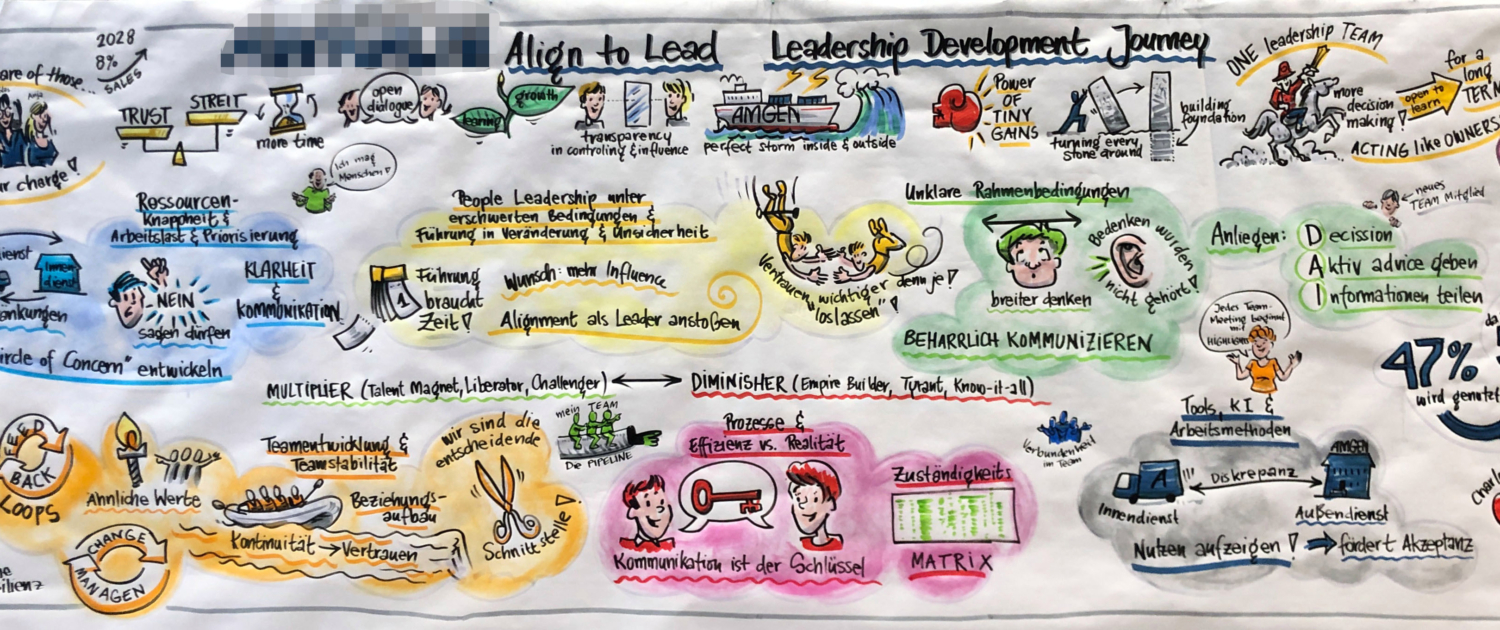 2028
8%
SALES
Align to Lead
Leadership Development Journey
are of those...
charge!
TRUST
STREIT
more time
open
dialogue
learning
growth
transparency
in controling & influence
AMGEN
perfect storm inside & outside
Power
OF
TINY
GAINS
turning every
stone around
building
foundation
ONE leadership TEAM
more
decision
making!
open to
learn
for a
long
TERM
ACTING like OWNERS
Ich mag
Menschen!
Ressourcen-
Knappheit &
Arbeitslast & Priorisierung
Innen
dienst
NEIN
sagen dürfen
KLARHEIT
&
KOMMUNIKATION
ircle of Concern" entwickeln
People Leadership unter
erschwerten Bedingungen &
Führung in Veränderung & Unsicherheit
1
Führung
braucht
Zeit!
Wunsch: mehr Influence
Alignment als Leader anstoßen
Vertrauen wichtiger denn je!
"loslassen"
Unklare Rahmenbedingungen
breiter denken
Bedenken wurden
nicht gehört!
BEHARRLICH KOMMUNIZIEREN
neues
TEAM Mitglied
Anliegen:
Decission
Aktiv advice geben
Informationen teilen
Jedes Team-
Meeting beginnt
mit
HIGHLIGHTS
47%
wird genutzt
MULTIPLIER (Talent Magnet, Liberator, Challenger)
DIMINISHER (Empire Builder, Tyrant, Know-it-all)
FEED
BACK
LOOPS
Ähnliche Werte
CHANGE
MANAGEN
Teamentwicklung &
Teamstabilität
Beziehungs-
aufbau
Kontinuität → Vertrauen
wir sind die
entscheidende
Schnittstelle!
mein TEAM
Die PIPELINE
Prozesse &
Effizienz vs. Realität
Kommunikation ist der Schlüssel
Zuständigkeits
MATRIX
Verbundenheit
im Team
Tools, KI &
Arbeitsmethoden
A
Innendienst
Diskrepanz
AMGEN
Außendienst
Nutzen aufzeigen! → fördert Akzeptanz